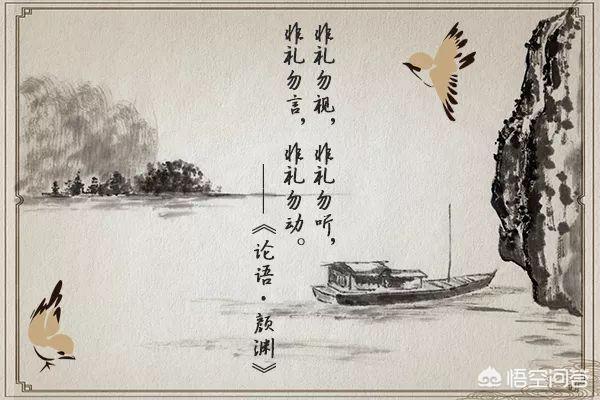 非礼勿视，非礼勿听，
非礼勿言，非礼勿动。
——《论语·颜渊》
悟空问答